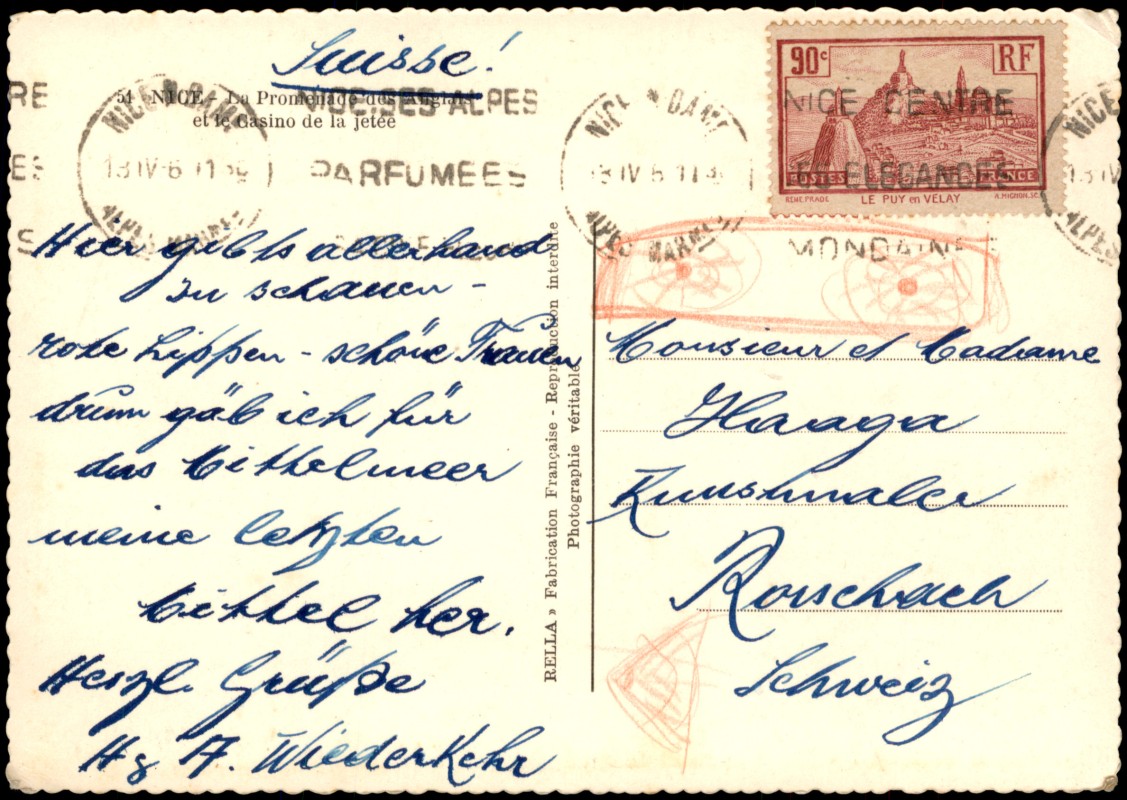 Suisse!
54 - NICE - La Promenade des Anglais
et le Casino de la jetée
RE
NICE SES ALPES
PARFUMEES
ES
S
NICE
ALPES MARMES
13 IV-6 1130
NICE * DAME
13 IV 6 113
ALPES MARMES
NICE CENTRE
ELEGANCES
MONDAINE
NICE
13 IV
ALPES
90c RF
POSTES FRANCE
RENE PRADE LE PUY en VELAY A. MIGNON. SC.
Hier gibts allerhand
zu schauen -
rote Lippen - schöne Frauen
drum gäb ich für
das Mittelmeer
meine letzten
Mittel her.
Herzl. Grüße
Hs A. Wiederkehr
RELLA » Fabrication Française - Reproduction interdite
Photographie véritable
Monsieur et Madame
Haaga
Kunstmaler
Rorschach
Schweiz